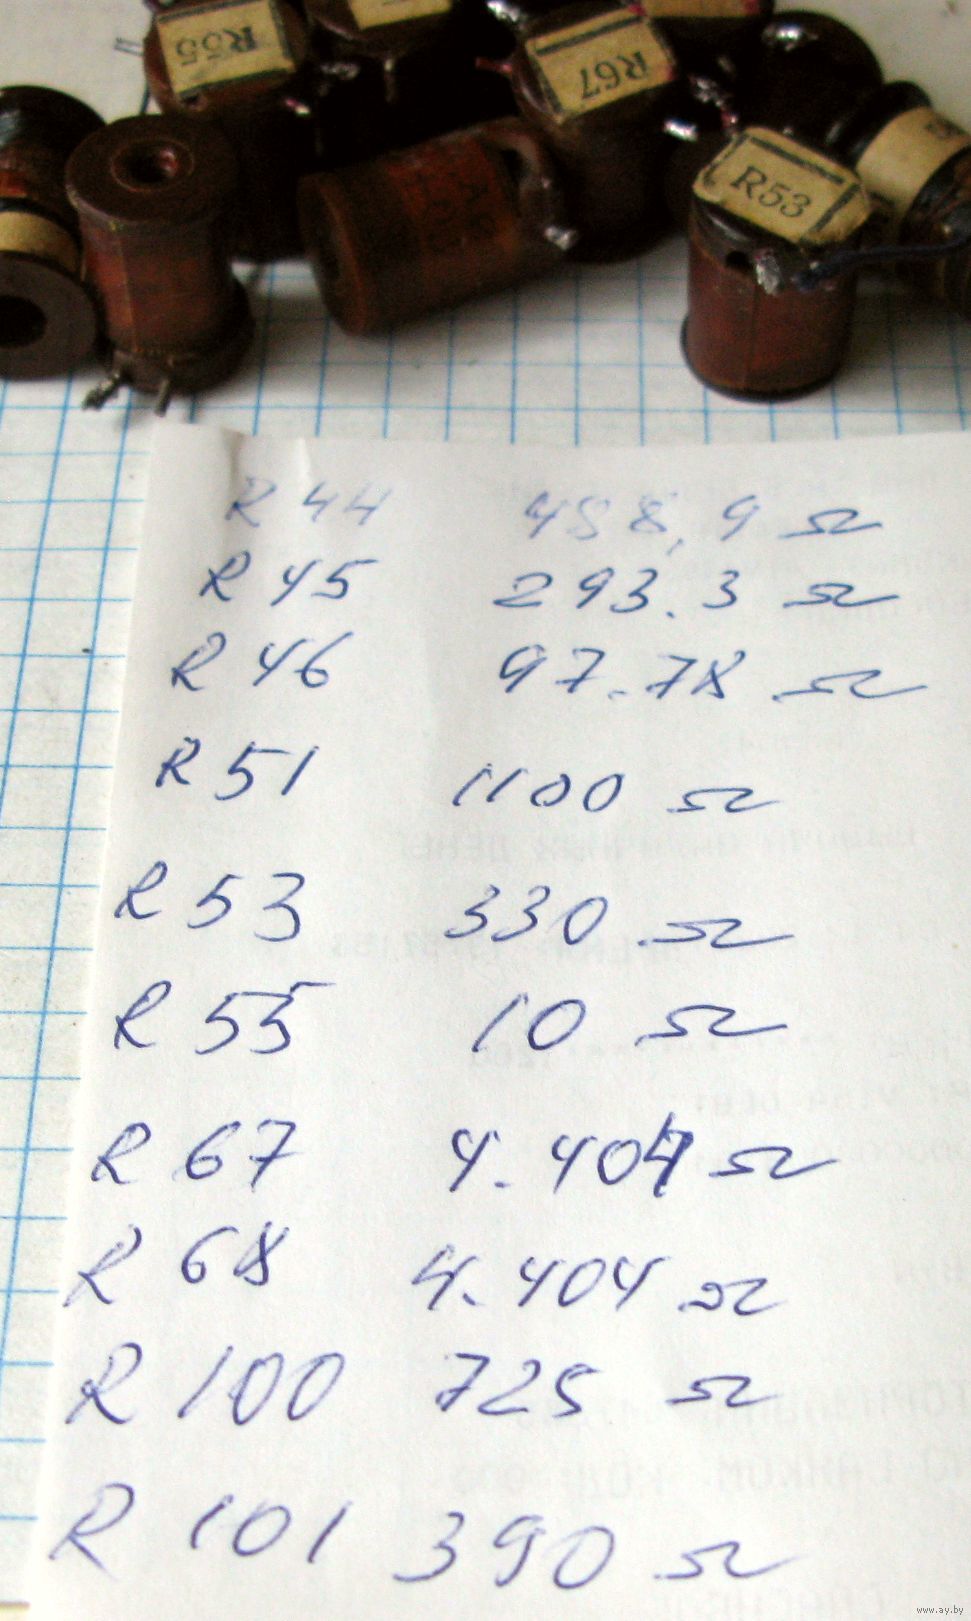 R55
R67
R53
R 44 488,9 Ω
R 45 293.3 Ω
R 46 97.78 Ω
R 51 1100 Ω
R 53 330 Ω
R 55 10 Ω
R 67 4.404 Ω
R 68 4.404 Ω
R 100 725 Ω
R 101 390 Ω
www.ay.by